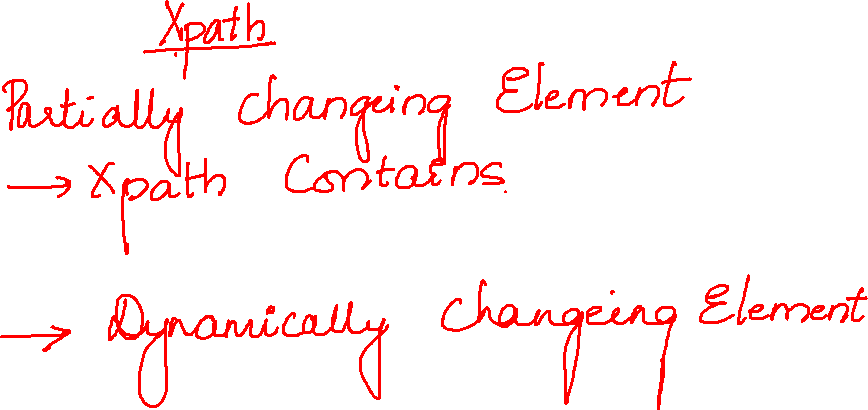 Xpath
Partially Changeing Element
→ Xpath Contains.
→ Dynamically Changeing Element